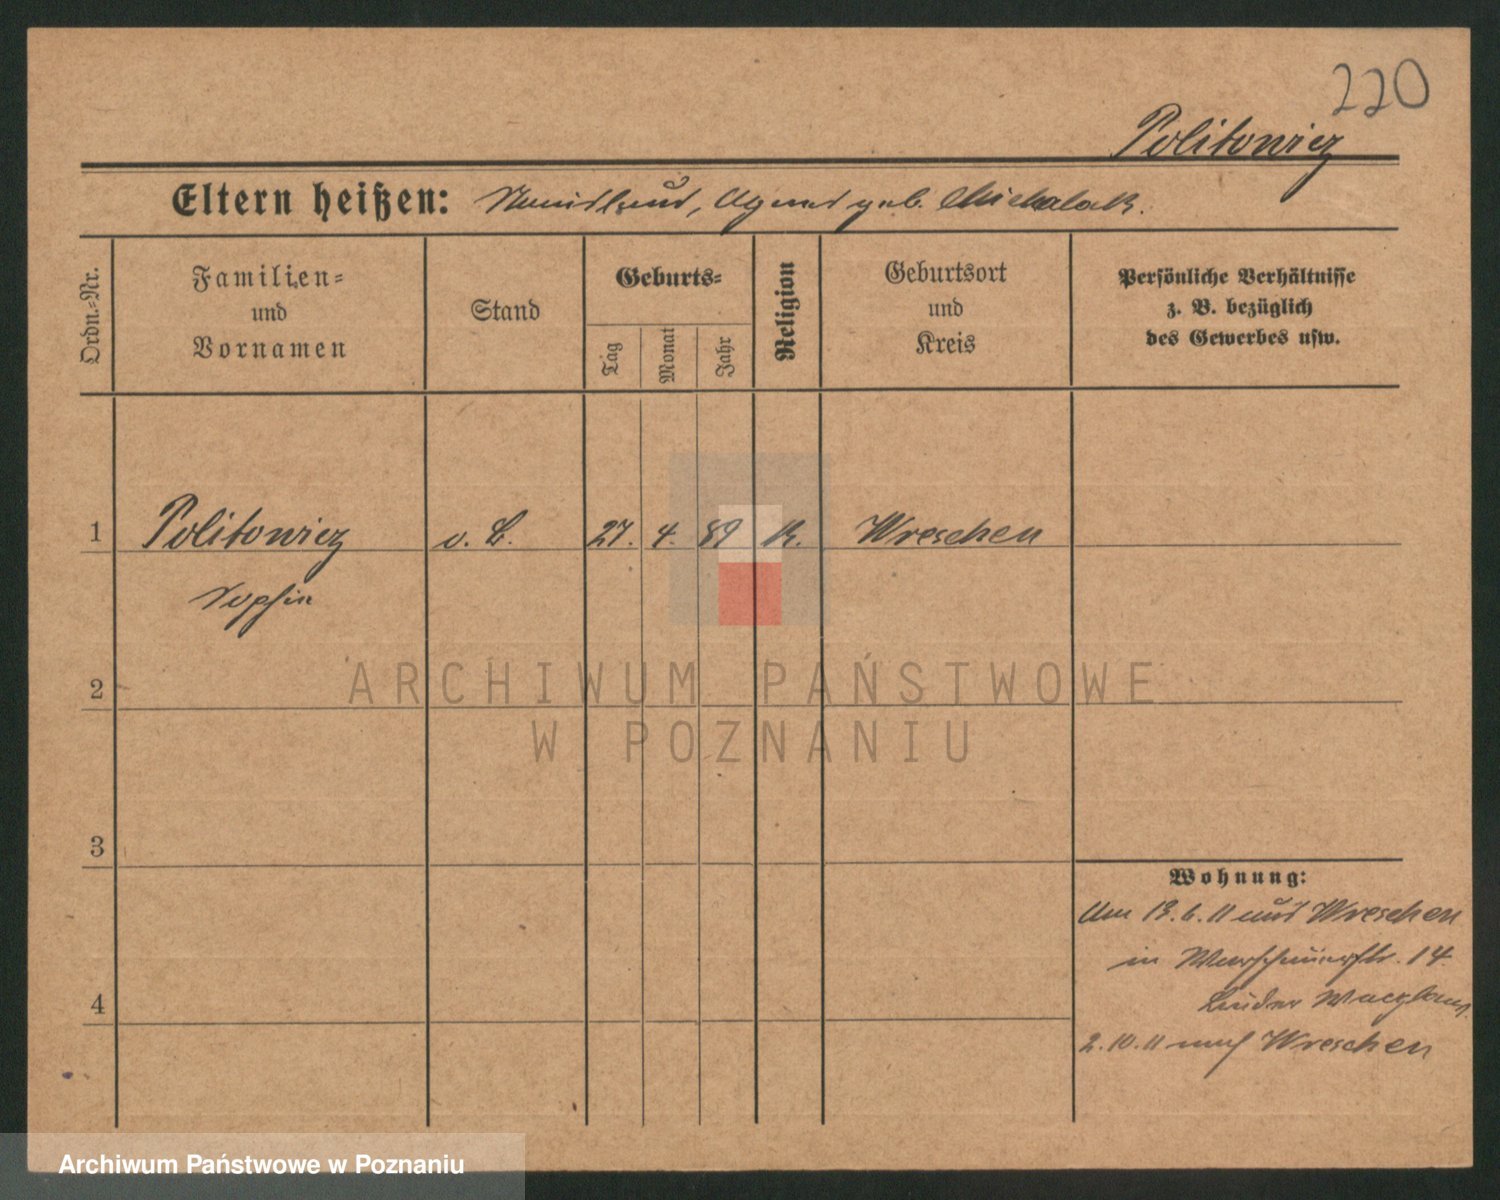 220
Politowicz
Eltern heißen: Stanislaus, Agnes geb. Michalak.
Ordn.-Nr.
Familien-
und
Vornamen
Stand
Geburts-
Tag
Monat
Jahr
Religion
Geburtsort
und
Kreis
Persönliche Verhältnisse
z. B. bezüglich
des Gewerbes usw.
1 Politowicz o. B. 27. 4. 89 K. Wreschen
Sophie
2
ARCHIWUM PAŃSTWOWE
W POZNANIU
3
Wohnung:
Am 13.6.11 aus Wreschen
in 14.
Bruder
4
2.10.11 nach Wreschen
Archiwum Państwowe w Poznaniu